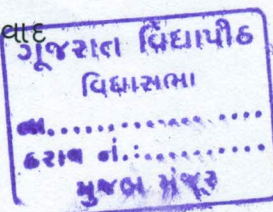 વાદ
ગૂજરાત વિદ્યાપીઠ
વિદ્યાસભા
તા..................
ઠરાવ નં.:............
મુજબ મંજૂર